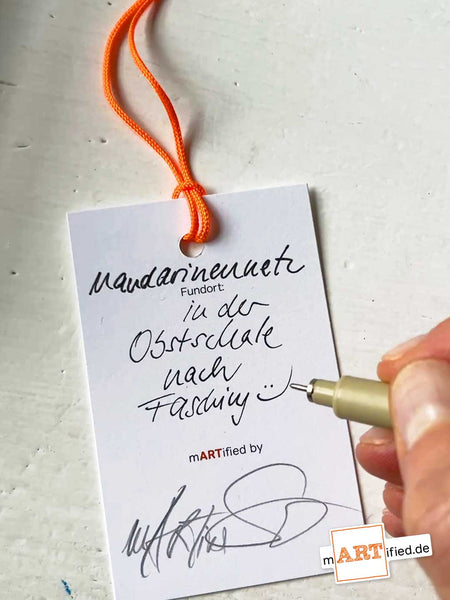 Mandarinennetz
Fundort:
in der
Obstschale
nach
Fasching
mARTified by
mARTified.de